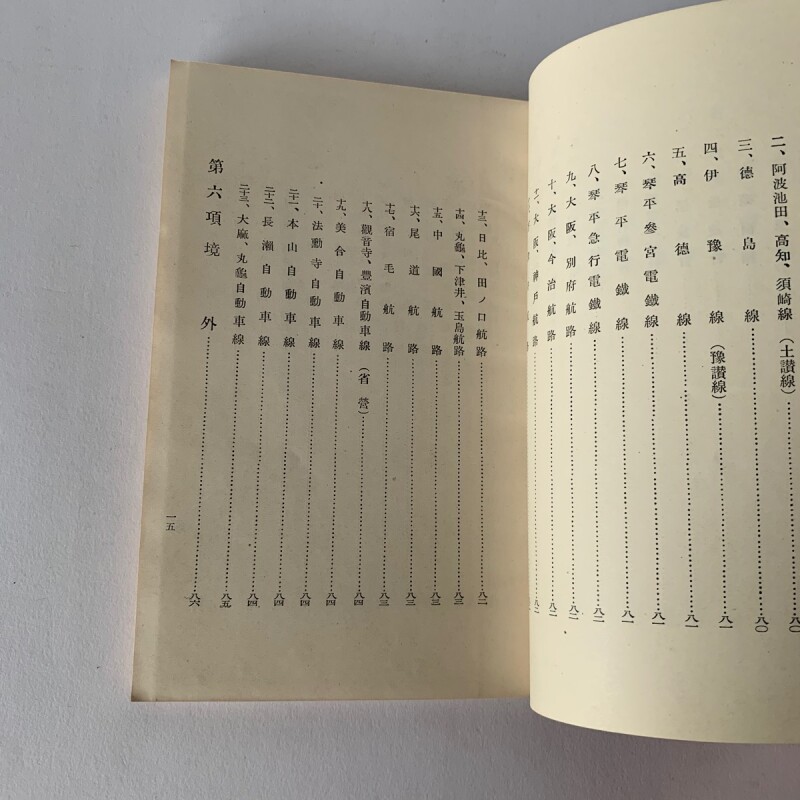 二、阿波池田、高知、須崎線(土讃線)……八〇
三、德島線……八〇
四、伊豫線(豫讃線)……八一
五、高德線……八一
六、琴平參宮電鐵線……八一
七、琴平電鐵線……八一
八、琴平急行電鐵線……八二
九、大阪、別府航路……八二
十、大阪、今治航路……八二
十一、大阪、神戸航路……八二
十三、日比、田ノ口航路……八二
十四、丸龜、下津井、玉島航路……八三
十五、中國航路……八三
十六、尾道航路……八三
十七、宿毛航路……八三
十八、觀音寺、豐濱自動車線(省營)……八四
十九、美合自動車線……八四
二十、法勳寺自動車線……八四
二十一、本山自動車線……八四
二十二、長瀨自動車線……八四
二十三、大麻、丸龜自動車線……八五
第六項 境外……八六
一五